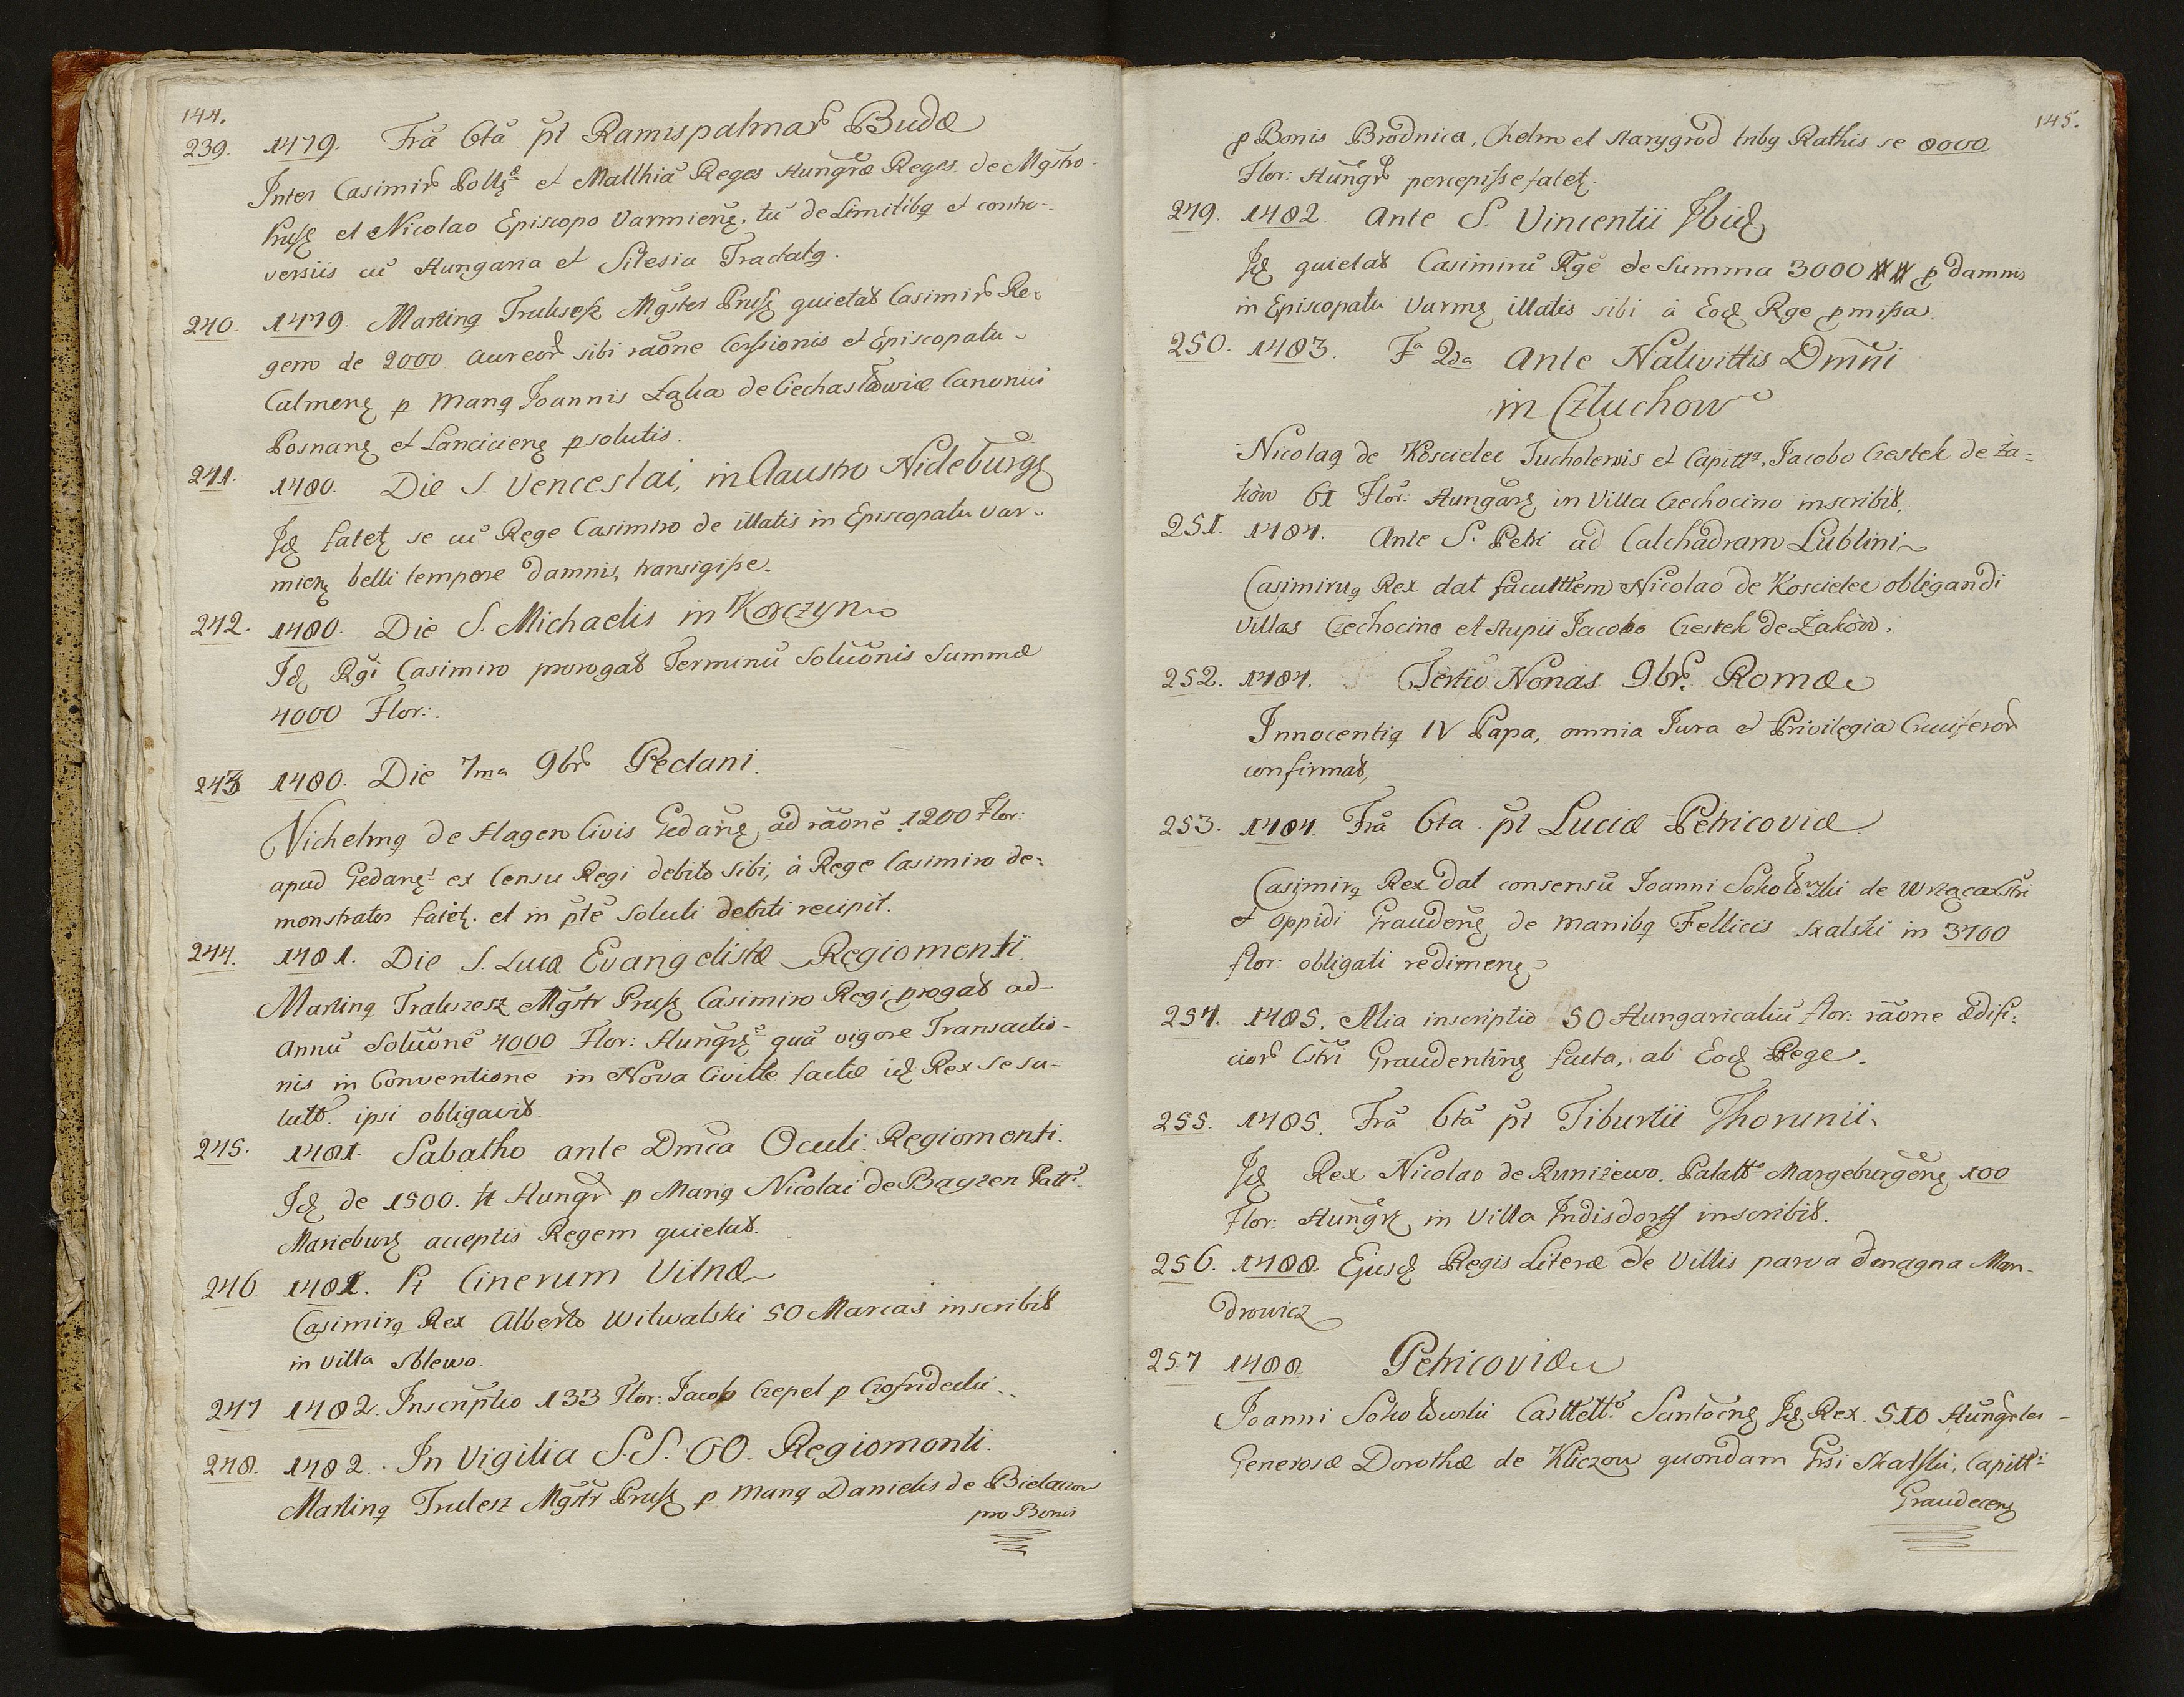 144.
239. 1479. Fra 6ta pt Ramispalmar Budæ
Inter Casimir Pollę et Matthia Reges Hungræ Reges. de Mgstro-
Prusę et Nicolao Episcopo Varmienę, tu de Limitibq et contro-
versiis cu Hungaria et Silesia Tractatq.
240. 1479. Martinq Truksesz Mgster Prusę quietat Casimir Re-
gem de 2000 aureor sibi raone Cessionis et Episcopatu-
Culmenę p manq Joannis de Canonici
Posnanę et Lancicienę psolutis.
241. 1480. Die S. Venceslai, in Claustro Nideburgę
Idę fatetę se cu Rege Casimiro de illatis in Episcopatu Var-
mienę belli tempore damnis, transigisse.
242. 1480. Die S. Michaelis in Korczyn
Idę Rgi Casimiro prorogat Terminu Soluonis Summæ
4000 Flor:.
243 1480. Die 7ma 9br Pedani.
Nichelmq de Hagen Civis Gedanę, ad raone 1200 Flor:
apud Gedanę ex Censu Regi debito sibi, à Rege Casimiro de-
monstrator fatetę. et in pte soluti debiti recipit.
244. 1481. Die S. Lucæ Evangelistæ Regiomonti.
Martinq Truksesz Mgstr Prusę Casimiro Regi progat ad-
Annu Soluone 4000 Flor: Hungrę qua vigore Transactio-
nis in Conventione in Nova Civitte factæ idę Rex se su-
lutt. ipsi obligavit.
245. 1481. Sabatho ante Dmca Oculi. Regiomonti.
Idę de 1500. Hungr p Manq Nicolai de Bayzen Patt.
Marieburę acceptis Regem quietat.
246. 1481. Pt Cinerum Vilnæ
Casimirq Rex Alberto Witwalski 50 Marcas inscribit
in villa Sblewo.
247 1482. Inscriptio 133 Flor: Jacob Czepel p
248. 1482. In Vigilia S.S. OO. Regiomonti.
Martinq Trulesz Mgstr Prusę p manq Danielis de
pro Bonis
145.
p Bonis Brodnica, Chelm et Starygrod tribq Rathis se 8000
Flor: Hungr percepisse fatetę.
249. 1482. Ante S. Vincentii Ibidę
Idę quietat Casimiru Rge de Summa 3000 p damnis
in Episcopatu Varmę illatis sibi à Eodę Rge pmissa.
250. 1483. Fa 2da Ante Nativittis Dmni
in Człuchow
Nicolaq de Koscielec Tucholensis et Capitt, Jacobo Czestek de Ża-
ków 61 Flor: Hungarę in Villa Czechocino inscribit,
251. 1484. Ante S. Petri ad Calchadram Lublini
Casimiruq Rex dat faculttem Nicolao de Koscielec obligandi
villas Czechocino et Stupii Jacobo Czestek de Żaków.
252. 1484. Tertio Nonas 9br. Romæ
Innocentiq IV Papa, omnia Jura et Privilegia Cruciferor
confirmat,
253. 1484. Fra 6ta. pt Luciæ Petricoviæ
Casimirq Rex dat consensu Joanni de Cstri
et Oppidi Graudenę de manibq Fellicis Skalski in 3100
flor: obligati redimenę
254. 1485. Alia inscriptio 50 Hungaricaliu flor: raone ædifi-
cior Cstri Graudentinę facta, ab Eodę Rege.
255. 1485. Fra 6ta pt Tiburtii Thorunii.
Idę Rex Nicolao de Runizewo. Palatt Margeburgenę 100
Flor: Hungrę in Villa Indisdorff inscribit.
256. 1488. Ejusdę Regis Literæ de Villis parva & magna Man-
drowicz
257 1488. Petricoviæ
Joanni Castett. Santocnę Idę Rex. 510 Hungrles-
Generosæ Dorothæ de Kliczow quondam Grsi Skalski, Capitt:
Graudecenę